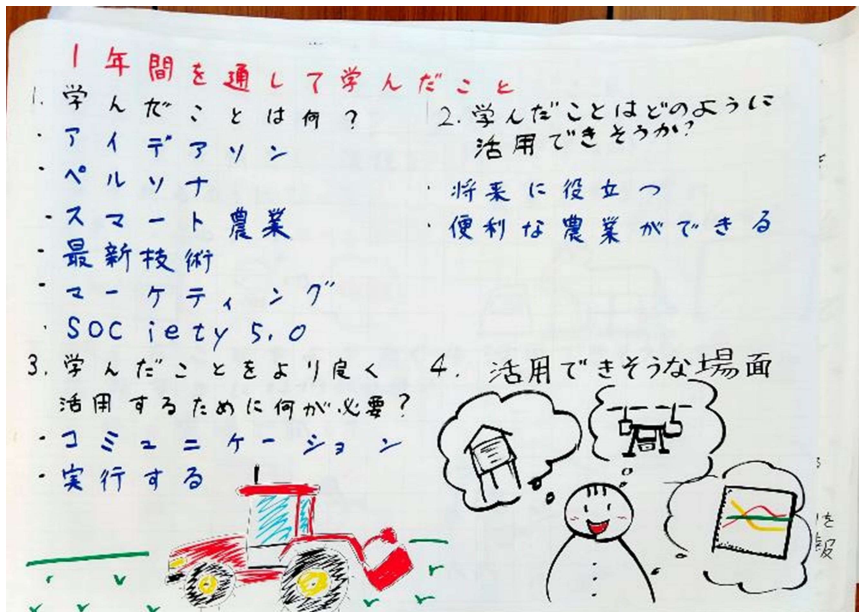 1年間を通して学んだこと
1. 学んだことは何？
・アイデアソン
・ペルソナ
・スマート農業
・最新技術
・マーケティング
・SOCiety 5.0
2. 学んだことはどのように
活用できそうか?
・将来に役立つ
・便利な農業ができる
3. 学んだことをより良く
活用するために何が必要？
・コミュニケーション
・実行する
4. 活用できそうな場面